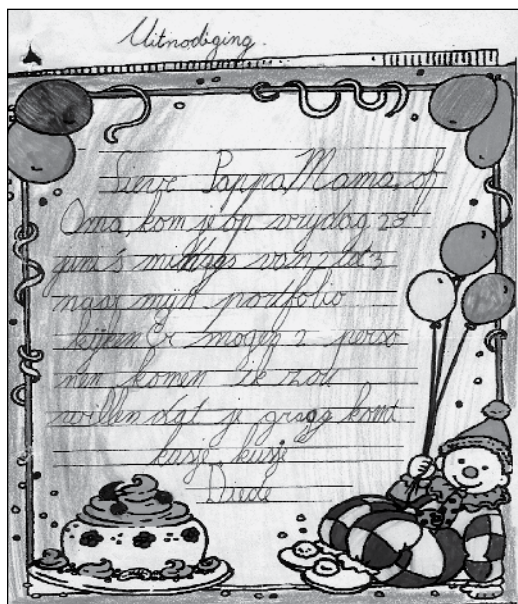 Uitnodiging.
Lieve Pappa, Mama, of
Oma, kom je op vrijdag 23
juni 's middags van 2 tot 3
naar mijn portfolio
kijken Er mogen 2 perso
nen komen ik zou
willen dat je graag komt
kusje kusje
Diede